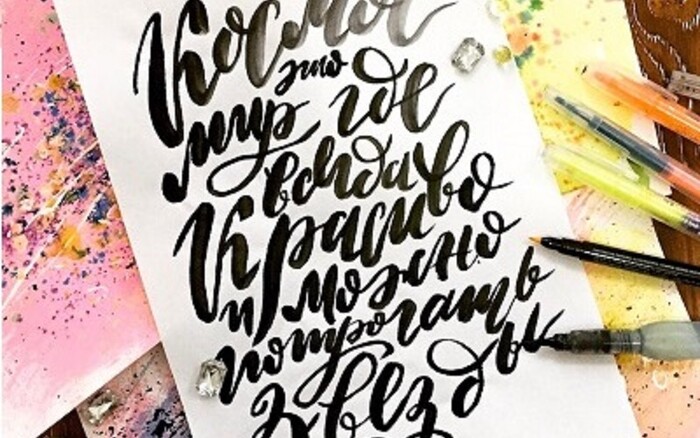 Космос
это
мир где
всегда
Красиво
и можно
потрогать
Звезды